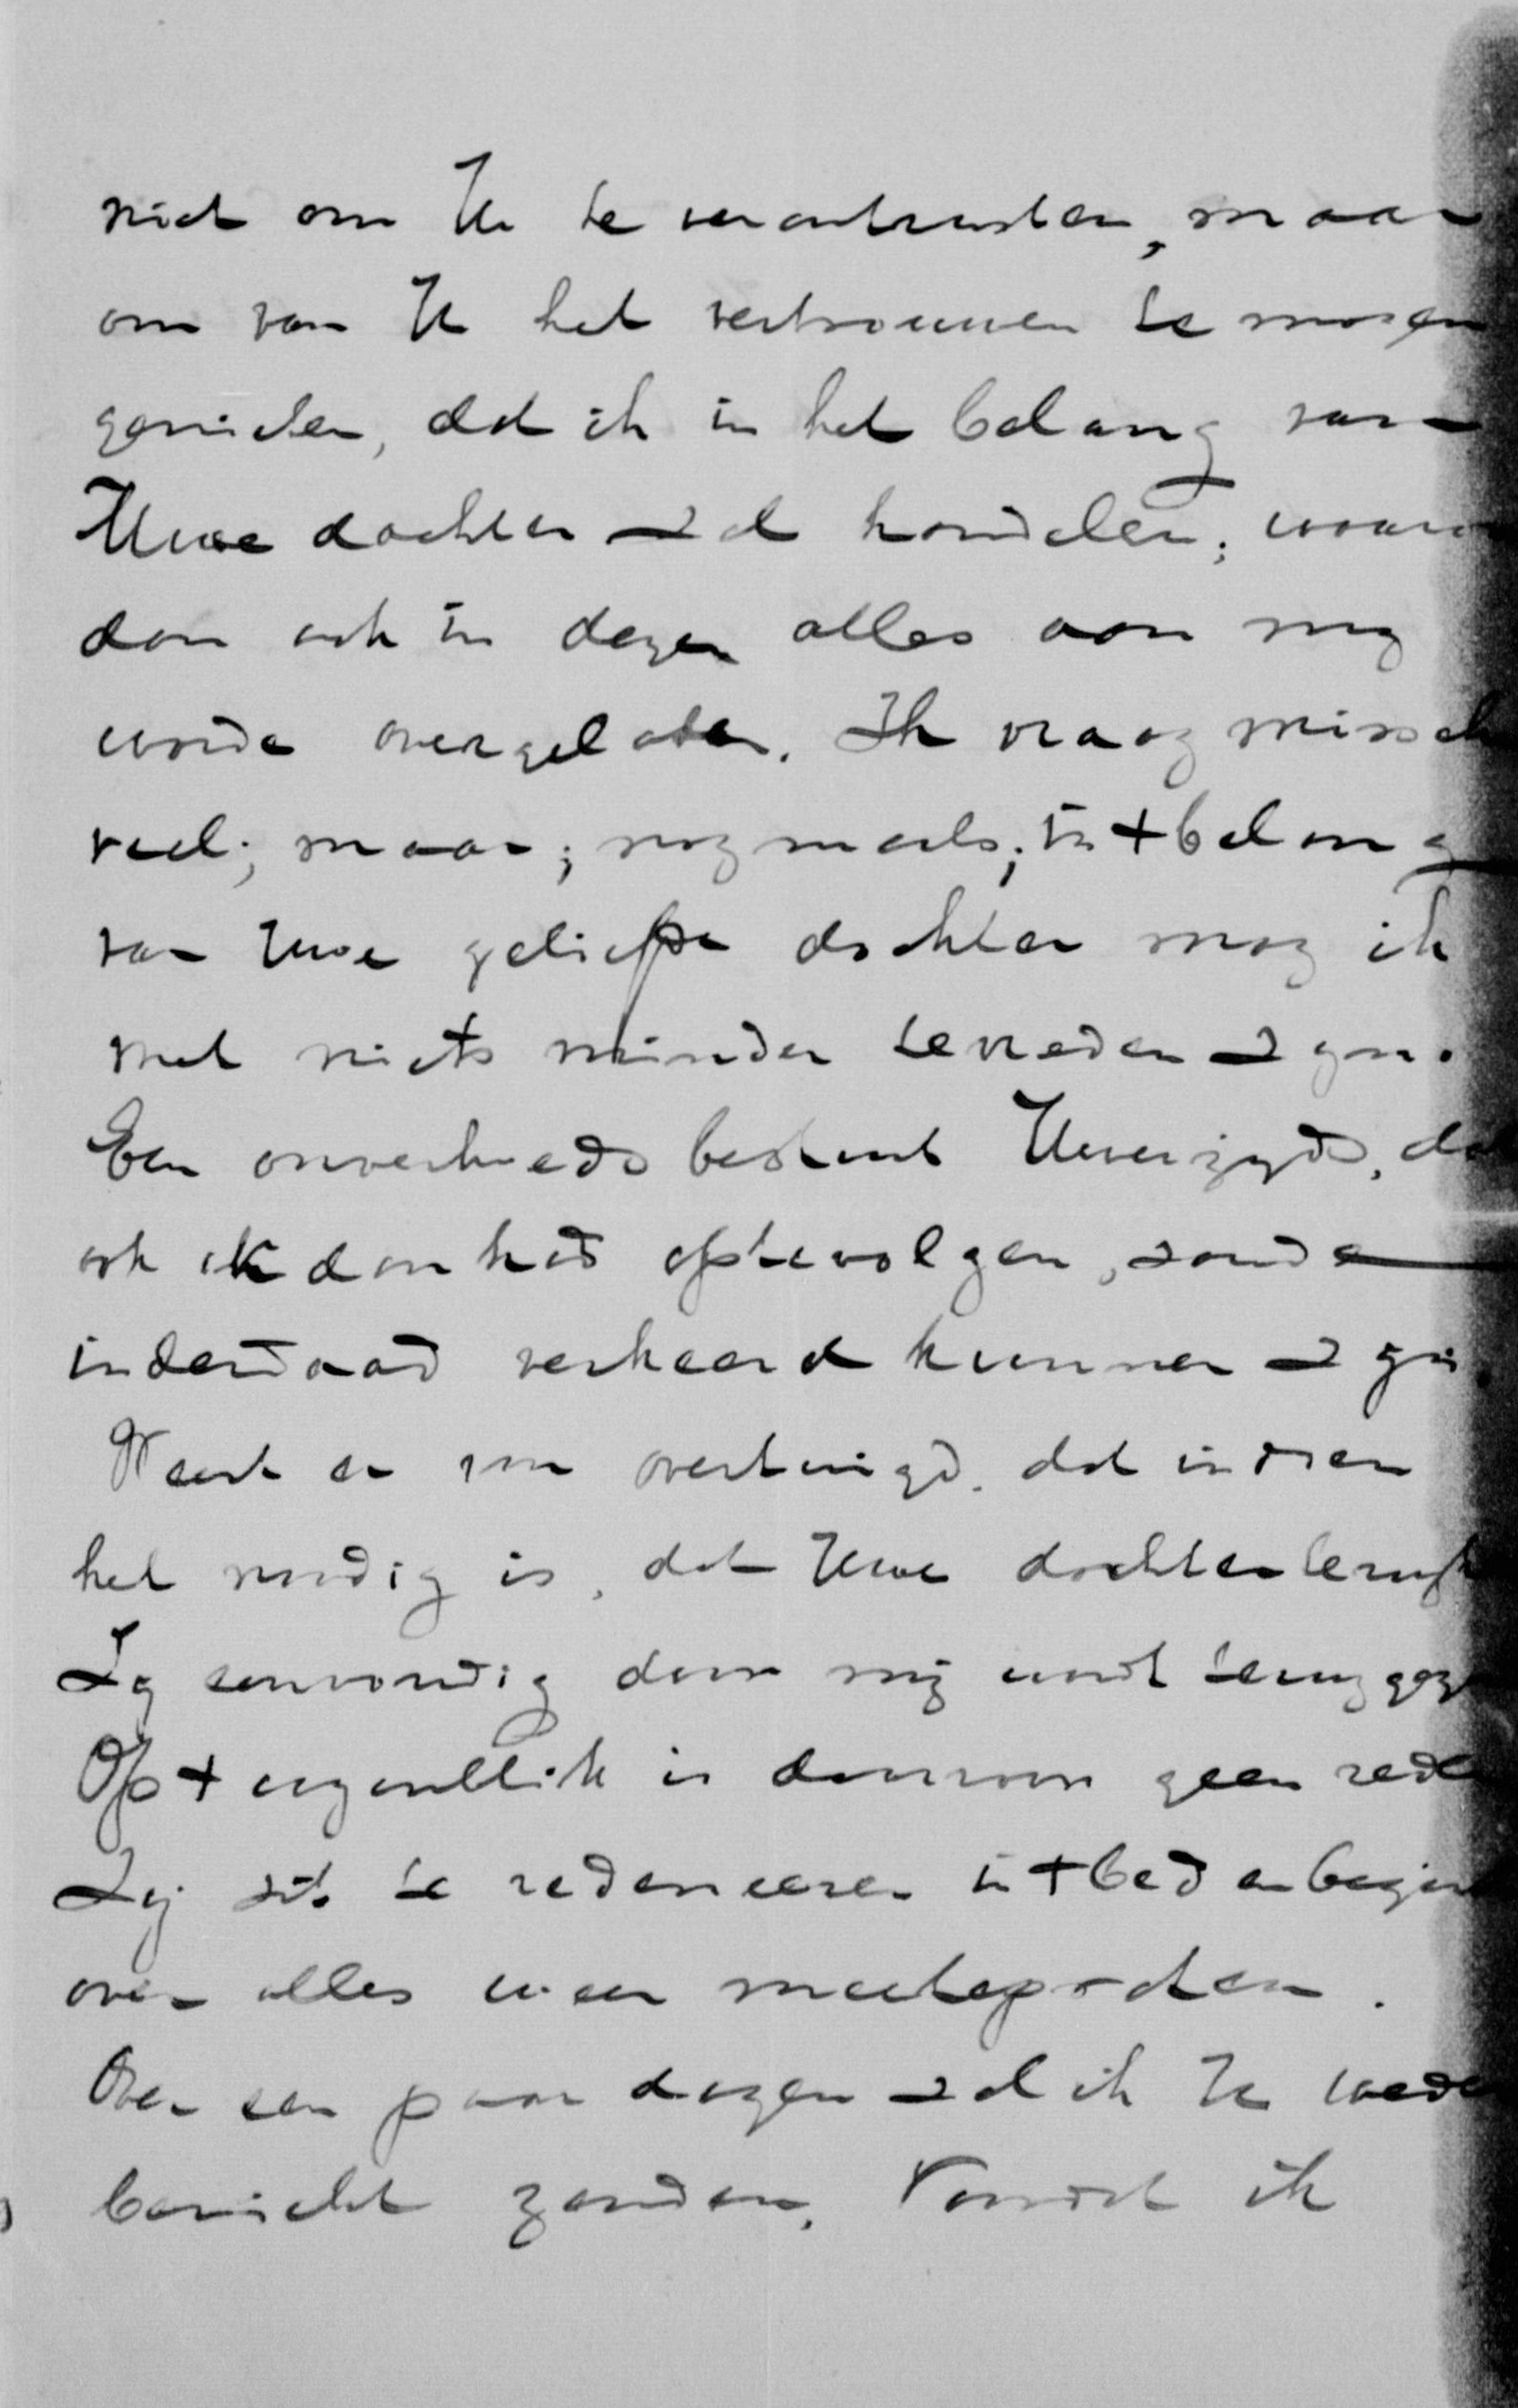 niet om U te verontrusten, maar
om van U het vertrouwen te mogen
genieten, dat ik in het belang van
Uwe dochter zal handelen; waar
dan ook in dezen alles aan my
worde overgelaten. Ik vraag missch
veel; maar; nogmaals; in t belang
van Uwe geliefde dochter mag ik
met niets minder tevreden zyn.
Een onverhoeds besluit Uwerzyds, dat
ook ik dan had optevolgen, zoude
inderdaad verkeerd kunnen zyn.
Weest er van overtuigd. dat indien
het noodig is, dat Uwe dochter terugk
Zy eenvoudig door mij wordt terugge
Op t oogenblik is daarvan geen rede
Zij zit te redeneeren in t bed en begin
over alles weer meetepraten.
Over een paar dagen zal ik U weder
bericht zenden. Voordat ik